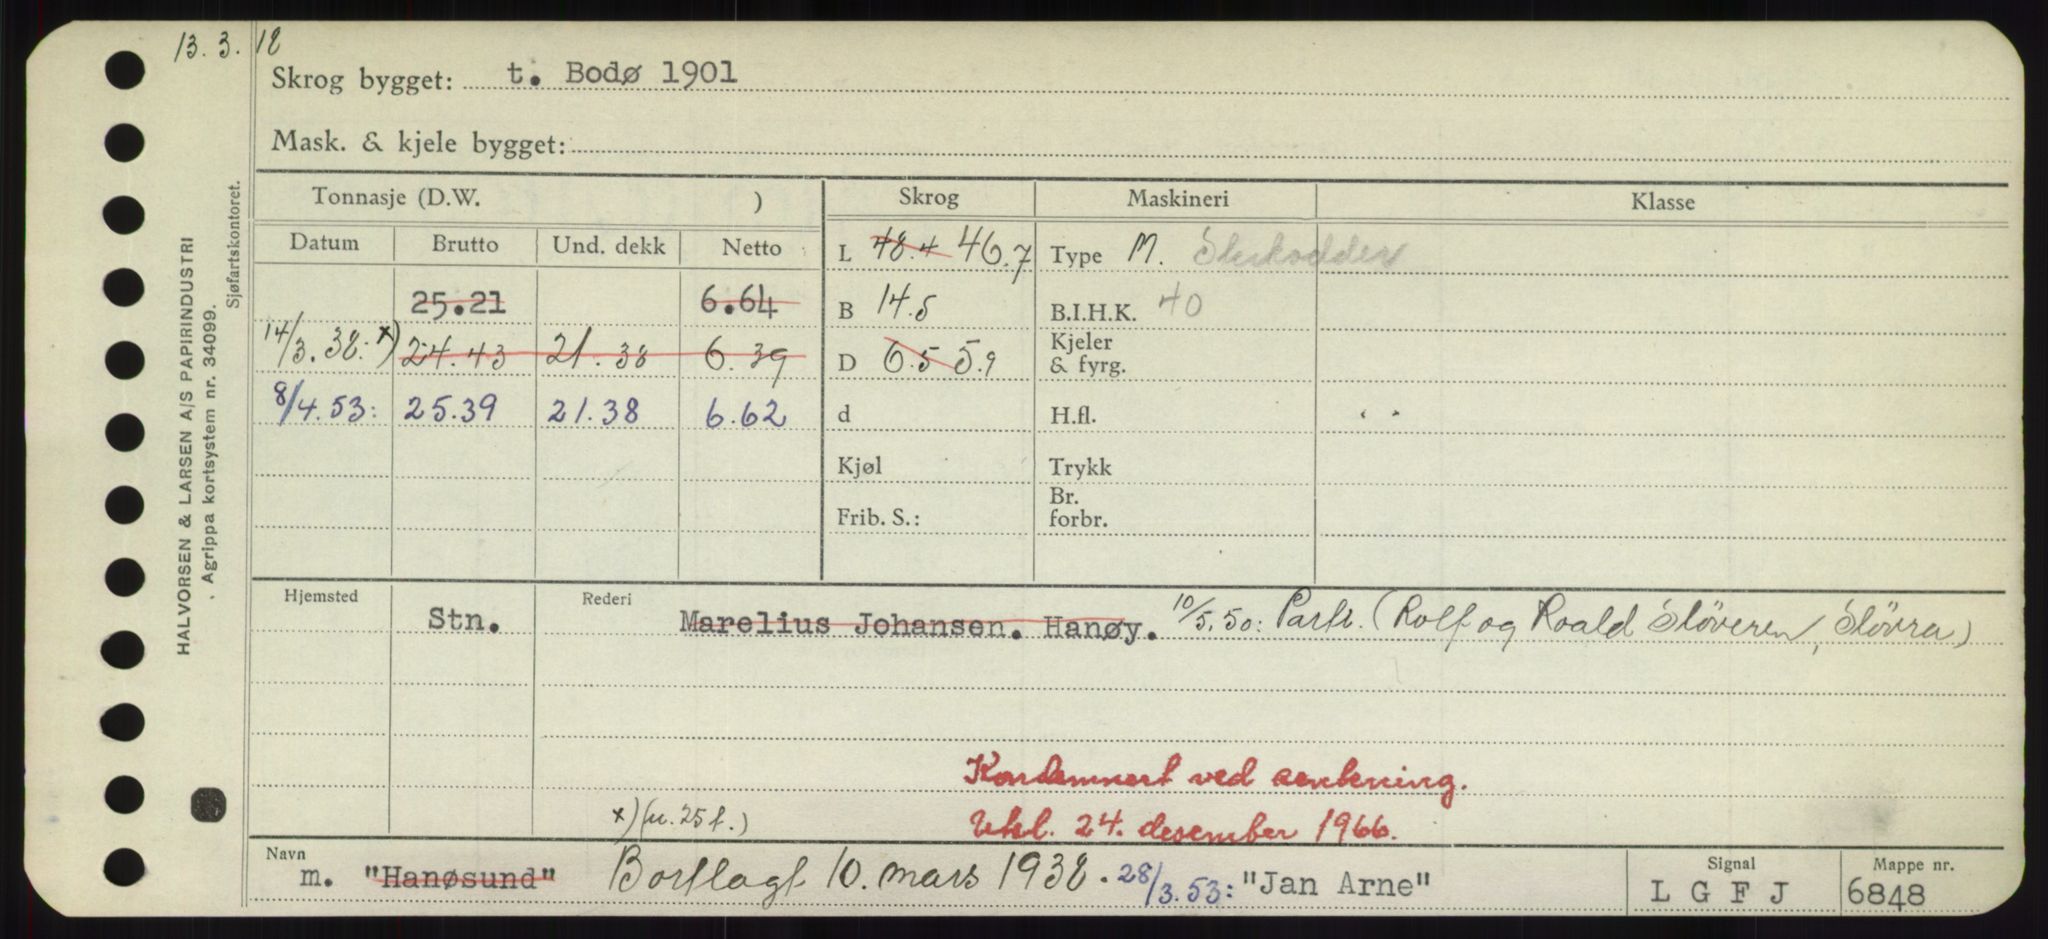 13. 3. 18
Skrog bygget: t. Bodø 1901
Mask. & kjele bygget:
HALVORSEN & LARSEN A/S PAPIRINDUSTRI
Agrippa kortsystem nr. 34099.
Sjøfartskontoret.
Tonnasje (D.W. ) Skrog Maskineri Klasse
Datum Brutto Und. dekk Netto L 48.4 46.7 Type M.
25.21 6.64 B 14.5 B.I.H.K. 40
14/3.38: x) 24.43 21.38 6.39 D 6.5 5.9 Kjeler & fyrg.
8/4.53: 25.39 21.38 6.62 d H.fl.
Kjøl Trykk
Frib. S.: Br. forbr.
Hjemsted Stn. Rederi Marelius Johansen. Hanøy. 10/5.50: Partr. (Rolf og Roald Sløveren, Sløvra)
Kondemnert ved senkning.
x) (u. 25 f.) Utkl. 24. desember 1966.
Navn m. "Hanøsund" Bortlagt 10. mars 1938. 28/3.53: "Jan Arne" Signal L G F J Mappe nr. 6848